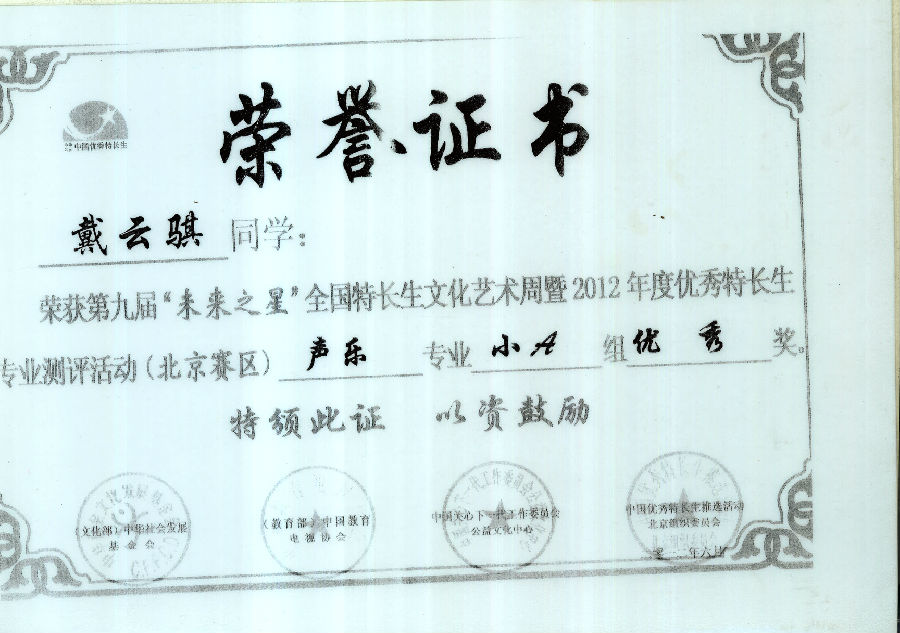 荣誉证书
中国优秀特长生
戴云骐 同学：
荣获第九届“未来之星”全国特长生文化艺术周暨2012年度优秀特长生
专业测评活动（北京赛区） 声乐 专业 小A 组 优 秀 奖。
特颁此证 以资鼓励
（文化部）中华社会发展
基金会
（教育部）中国教育
电视协会
中国关心下一代工作委员会
公益文化中心
中国优秀特长生推选活动
北京组织委员会